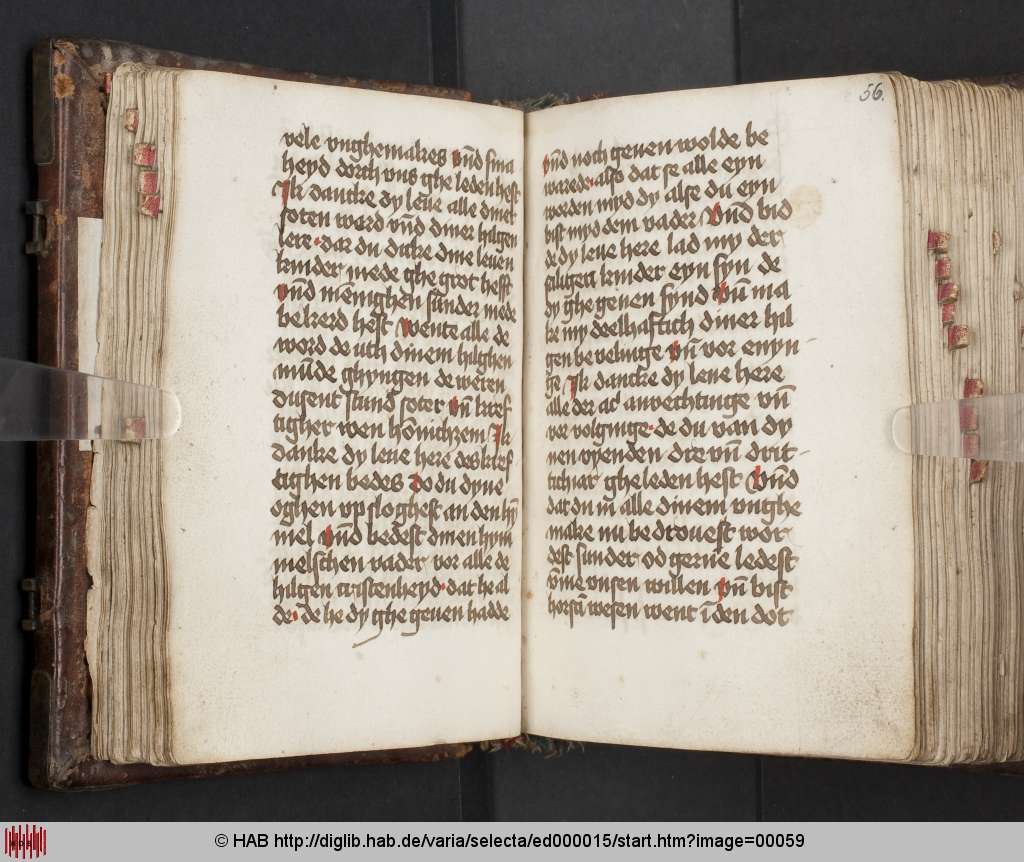 vele vnghemakes vnd sma
heyd dorch vns ghe leden hest
Ik dancke dy leue alle diner
soten word vnd diner hilgen
lere dar du dicke dine leuen
kinder mede ghe grot hefst
vnd mennighen sunder mede
bekerd hest wente alle de
word de uth dinem hilghen
munde ghyngen de weren
dusent stund soter vn kref
tigher wen honnichzem Ik
danke dy leue here des kref
tighen bedes do du dyne
oghen vp sloghest an den hȳ
mel vnd bedest dinen hym
melschen vader vor alle de
hilgen cristenheyd dat he al
de de he dy ghe geuen hadde
56.
vnd noch geuen wolde be
warede also dat se alle eyn
werden myd dy alse du eyn
bist myd dem vader vnd bid
de dy leue here lad my der
seiligen kinder eyn syn de
dy ghe geuen synd vn ma
ke my deelhaftich diner hil
gen beuelinge vn vor enyn
ge Ik dancke dy leue here
alle der ac anvechtinge vn
vor volginge de du van dy
nen vyenden dre vn drit
tich iar gheleden hest vnd
dat du in alle dinem vnghe
make nu bedrouest wor
dest sunder od gerne ledest
vme vnsen willen vn bist
horsam wesen went in den dot
© HAB http://diglib.hab.de/varia/selecta/ed000015/start.htm?image=00059